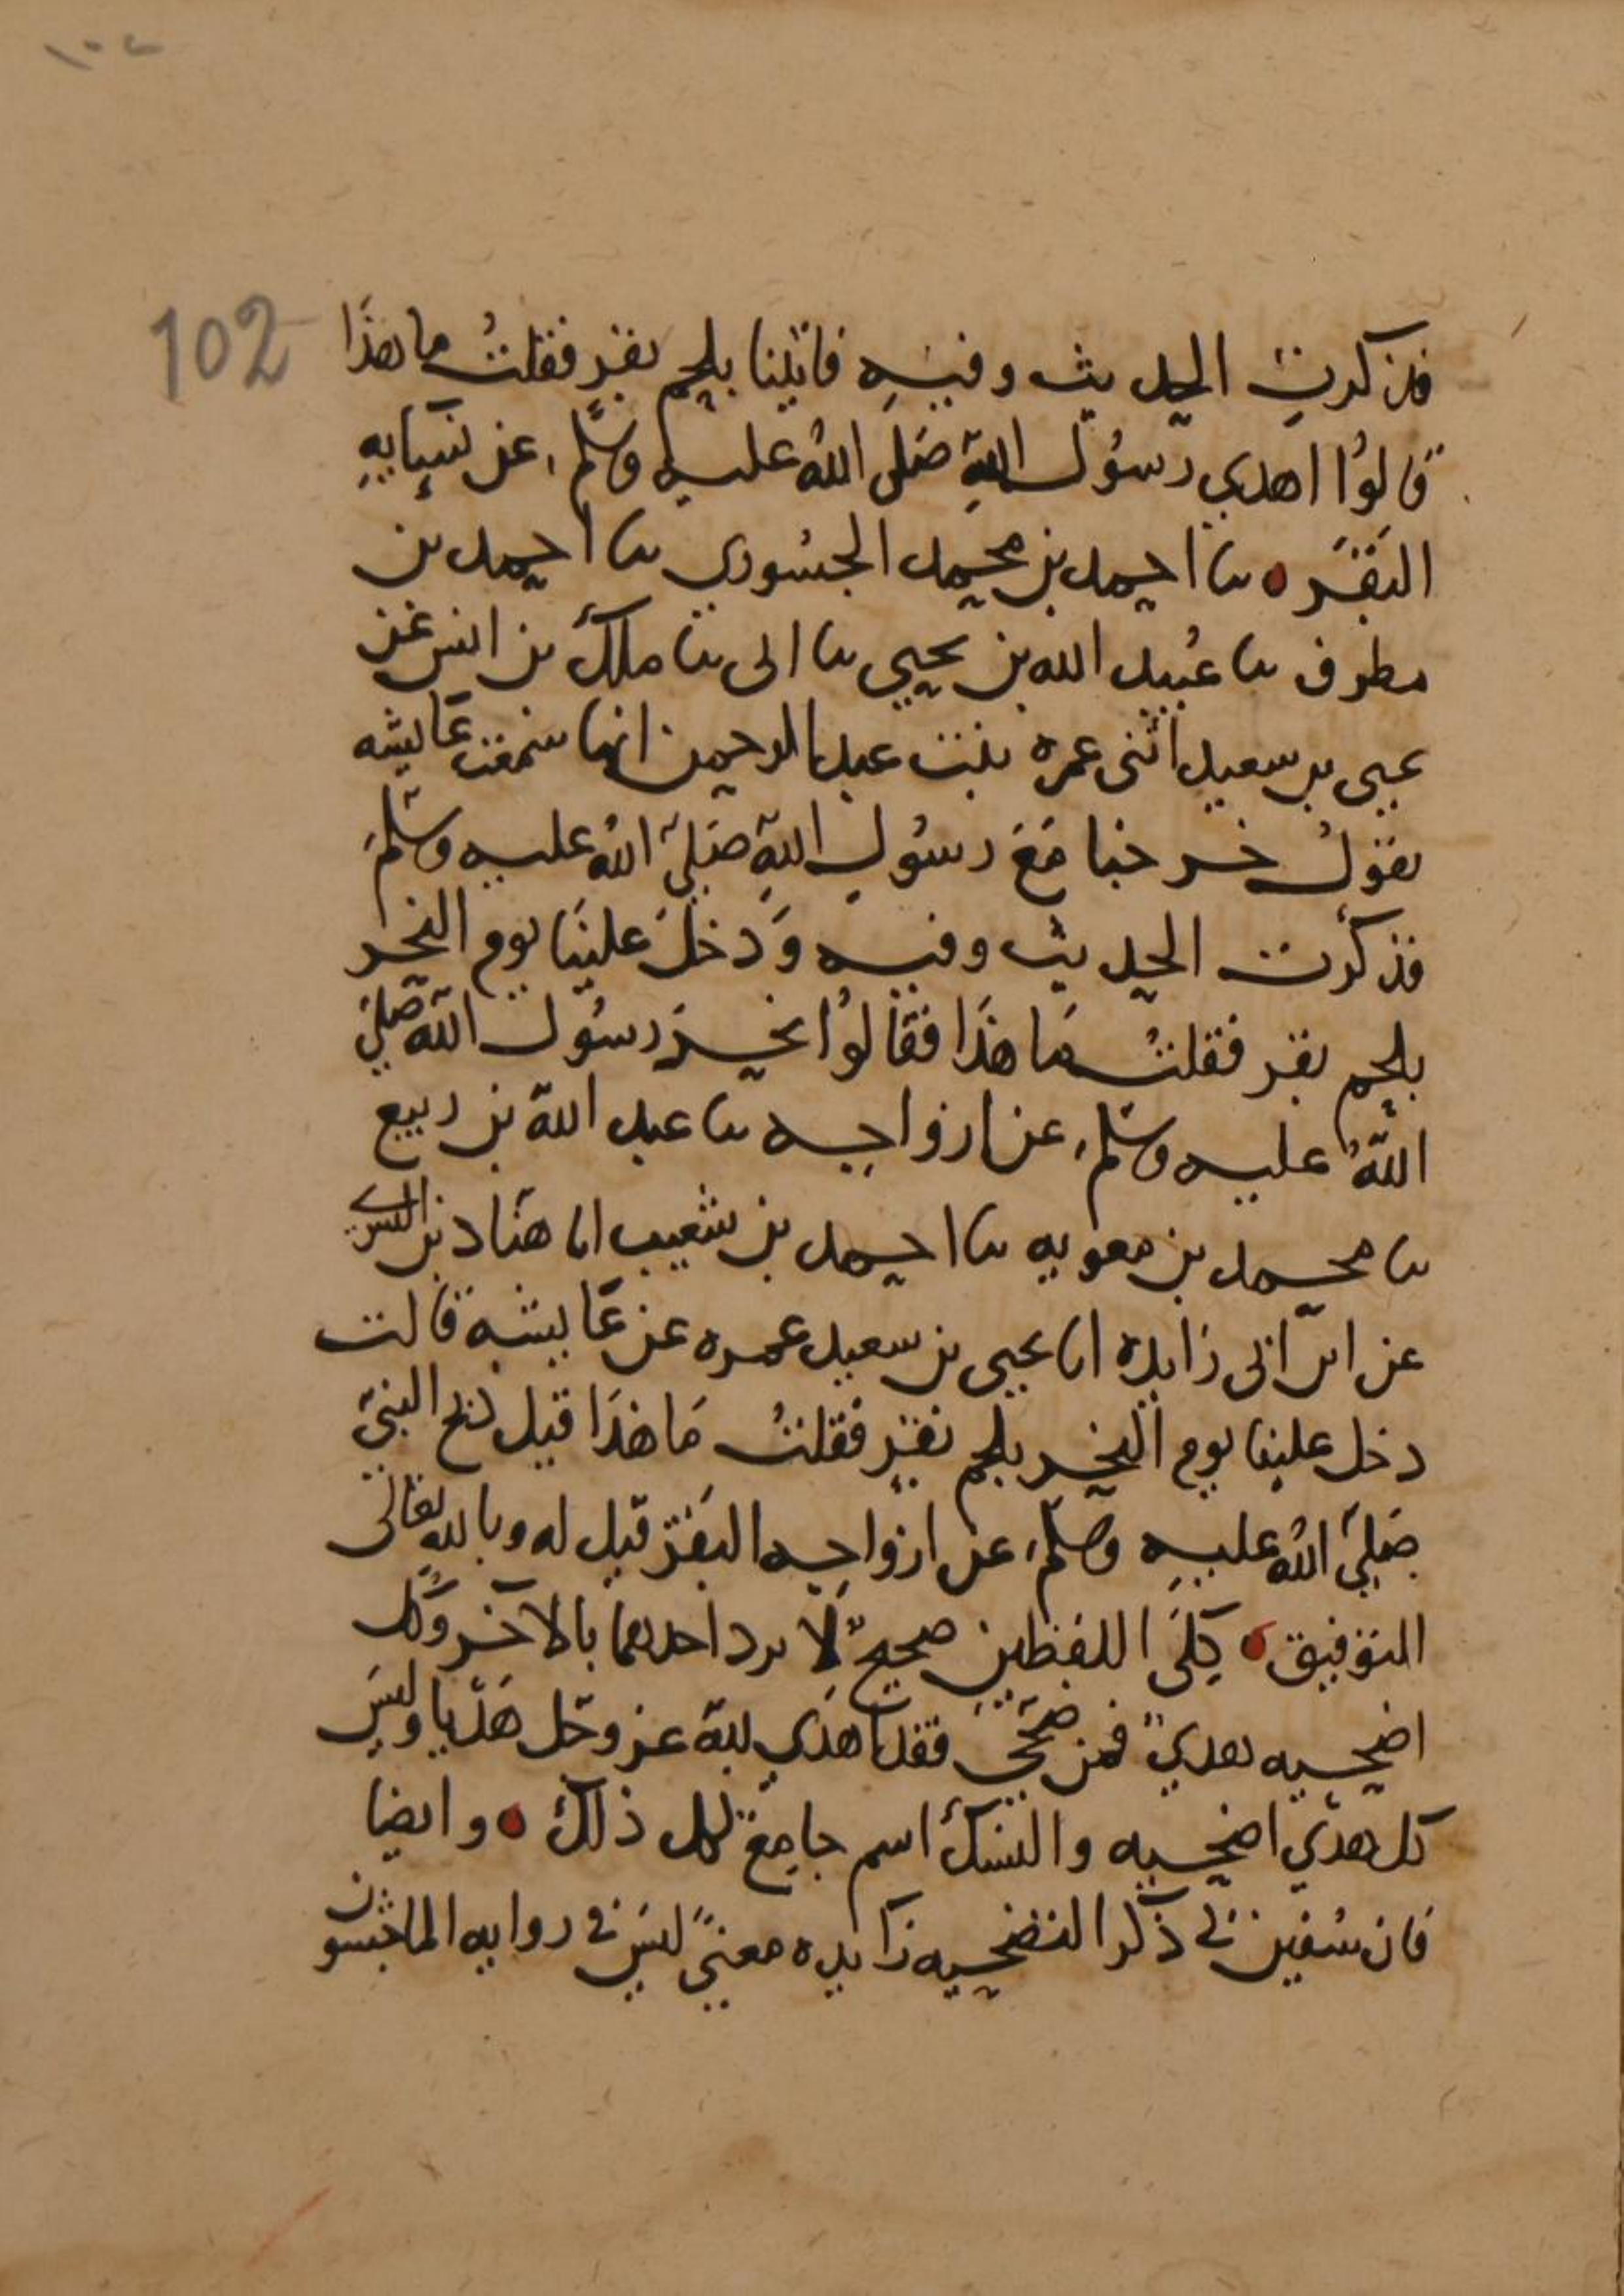 ١٠٢
102
فذكرت الحديث وفيه فاتينا بلحم بقر فقلت ما هذا
قالوا اهدي رسول الله صلى الله عليه وسلم عن نسايه
البقر ه نا احمد بن محمد الجسوري نا احمد بن
مطرف نا عبيد الله بن يحيي نا ابي نا ملك بن انس عن
يحيى بن سعيد اثنى عمره بنت عبد الرحمن انها سمعت عايشه
تقول خرجنا مع رسول الله صلى الله عليه وسلم
فذكرت الحديث وفيه ودخل علينا يوم النحر
بلحم بقر فقلت ما هذا فقالوا نحر رسول الله صلى
الله عليه وسلم عن ازواجه نا عبد الله بن ربيع
نا محمد بن معويه نا احمد بن شعيب انا هناد بن السري
عن ابن ابي زايده انا يحيى بن سعيد عمره عن عايشه قالت
دخل علينا يوم النحر بلحم بقر فقلت ما هذا قيل ذبح النبي
صلى الله عليه وسلم عن ازواجه البقر قيل له وبالله تعالى
التوفيق ه كلى اللفظين صحيح لا يرد احدهما بالاخر وكل
اضحيه هدي فمن ضحى فقد اهدي لله عز وجل هديا وليس
كل هدي اضحيه والنسك اسم جامع لكل ذلك ه وايضا
فان سفين في ذكر التضحيه زايده معنى ليس في روايه الماجشون